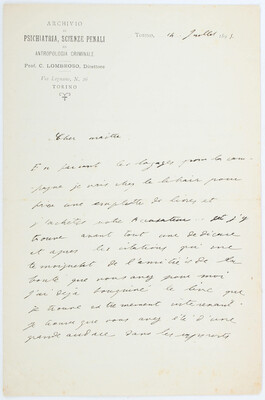 ARCHIVIO
DI
PSICHIATRIA, SCIENZE PENALI
ED
ANTROPOLOGIA CRIMINALE
Prof. C. LOMBROSO, Direttore
Via Legnano, N. 26
TORINO
Torino, 14 Juillet
Cher maître
En faisant les bagages pour la cam-
pagne je vais chez le libraire pour
faire une emplette de livres et
j'achète votre Accusateur. Et j'y
trouve avant tout une dedicace
et apres les citations qui me
temoignent de l'amitié et de la
bonté que vous avez pour moi
J'ai déjà le livre que
je trouve extremement interessant.
Je trouve que vous avez été d'une
grande audace dans les rapports